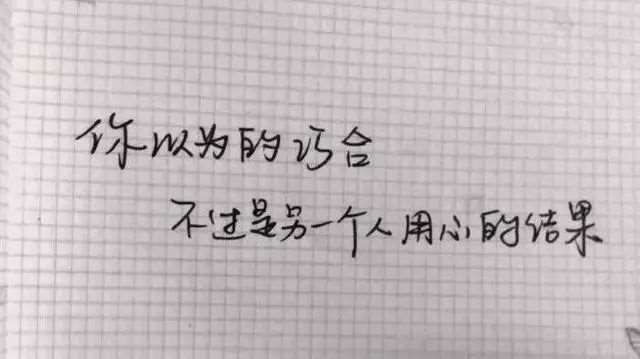 你以为的巧合
不过是另一个人用心的结果